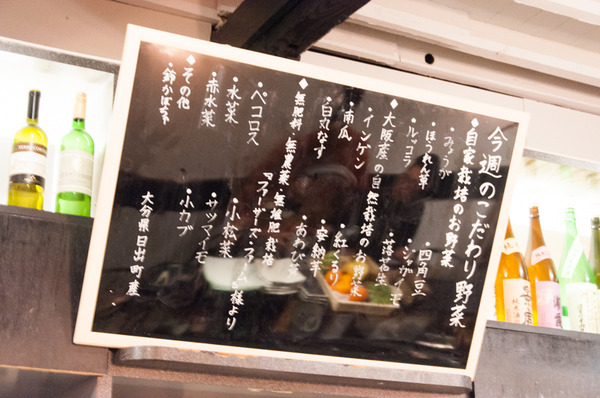 今週のこだわり野菜
◆自家栽培のお野菜
・みょうが
・ほうれん草
・ルッコラ
・四角豆
・ジャガイモ
・落花生
◆大阪産の自然栽培のお野菜
・インゲン
・南瓜
・白丸なす
・紅くるり
・安納芋
・あわび茸
◆無肥料・無農薬・無堆肥栽培
『ファーザーズ・ファーム』様より
・ペコロス
・水菜
・赤水菜
・小松菜
・サツマイモ
・小カブ
◆その他
・鈴かぼちゃ
大分県日出町産